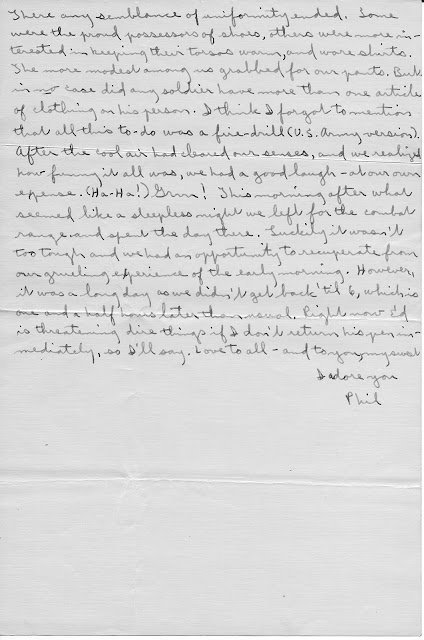 There any semblance of uniformity ended. Some
were the proud possessors of shoes, others were more in-
terested in keeping their torsos warm, and wore shirts.
The more modest among us grabbed for our pants. But
in no case did any soldier have more than one article
of clothing on his person. I think I forgot to mention
that all this to-do was a fire-drill (U.S. Army version).
After the cool air had cleared our senses, and we realized
how funny it all was, we had a good laugh - at our own
expense. (Ha-Ha!) Grrr! This morning after what
seemed like a sleepless night we left for the combat
range and spent the day there. Luckily it wasn't
too tough and we had an opportunity to recuperate from
our grueling experience of the early morning. However,
it was a long day as we didn't get back 'til 6, which is
one and a half hours later than usual. Right now Ed
is threatening dire things if I don't return his pen im-
mediately, so I'll say. Love to all - and to you, my sweet
I adore you
Phil